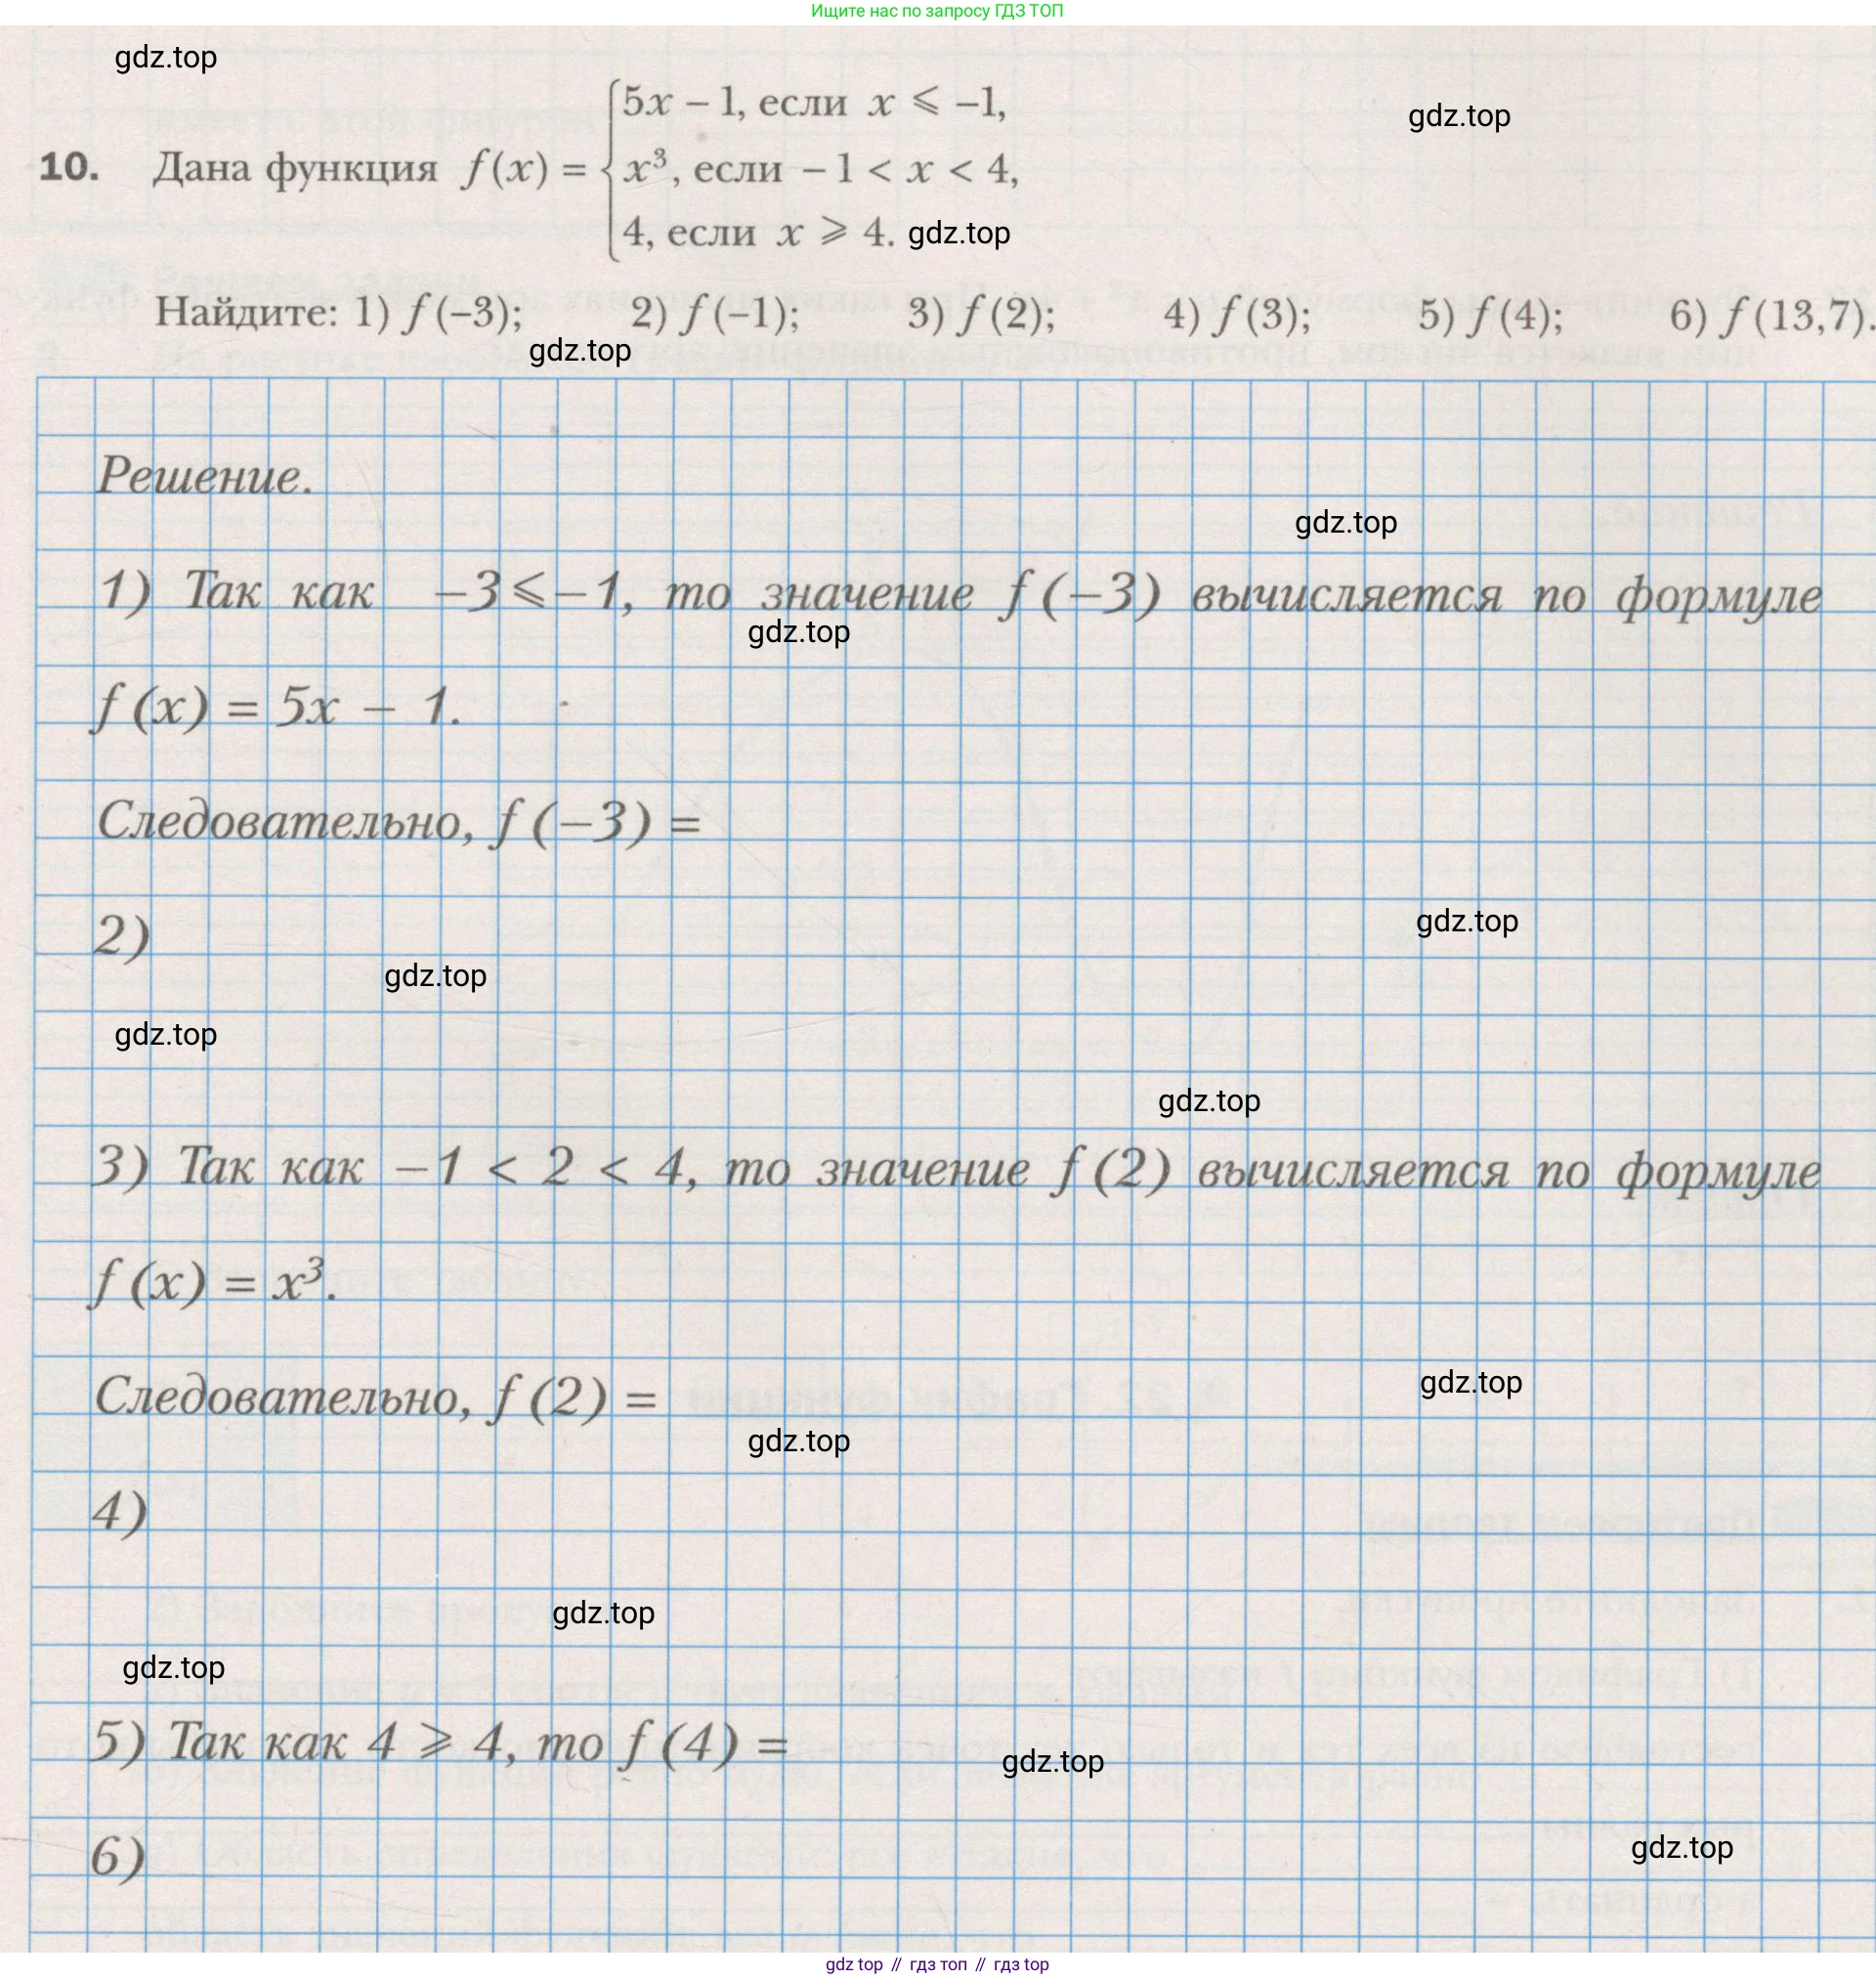 Ищите нас по запросу ГДЗ ТОП
gdz.top
gdz.top
10. Дана функция f(x) = { 5x – 1, если x ⩽ –1,
x³, если – 1 < x < 4,
4, если x ⩾ 4.
gdz.top
Найдите: 1) f(–3); 2) f(–1); 3) f(2); 4) f(3); 5) f(4); 6) f(13,7).
gdz.top
Решение.
gdz.top
1) Так как –3 ⩽ –1, то значение f(–3) вычисляется по формуле
gdz.top
f(x) = 5x – 1.
Следовательно, f(–3) =
2)
gdz.top
gdz.top
gdz.top
gdz.top
3) Так как –1 < 2 < 4, то значение f(2) вычисляется по формуле
f(x) = x³.
Следовательно, f(2) =
gdz.top
gdz.top
4)
gdz.top
gdz.top
5) Так как 4 ⩾ 4, то f(4) =
gdz.top
6)
gdz.top
gdz top // гдз топ // гдз top